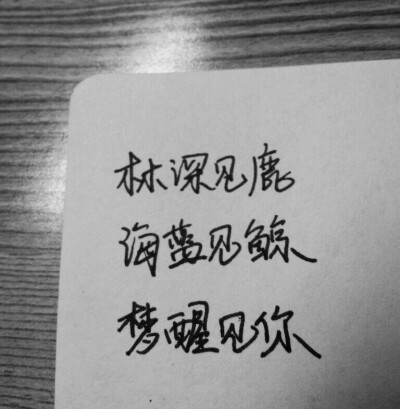 林深见鹿
海蓝见鲸
梦醒见你